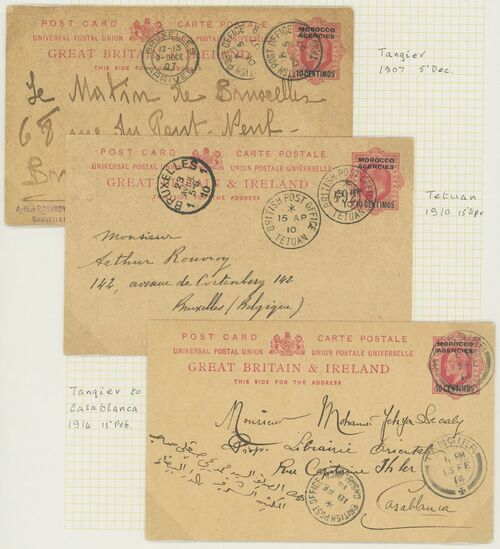 POST CARD CARTE POSTALE
UNIVERSAL POSTAL UNION
GREAT BRITAIN & IRELAND
THIS SIDE FOR THE
BRUXELLES
12-13
9-DECE
07
ARRIVEE
MOROCCO
AGENCIES
10 CENTIMOS
Le Matin de Bruxelles
68 rue du Pont-Neuf
BRUXELLES
Tangier
1907 5 Dec.
POST CARD CARTE POSTALE
UNIVERSAL POSTAL UNION UNION POSTALE UNIVERSELLE
IRELAND
THE ADDRESS
BRUXELLES 1
10
MOROCCO
AGENCIES
10 CENTIMOS
BRITISH POST OFFICE
15 AP
10
TETUAN
BRITISH POST OFFICE
TETUAN
Monsieur
Arthur Rouvroy
142, avenue de Cortenberg 142
Bruxelles (Belgique)
Tetuan
1910 15 Apr
POST CARD CARTE POSTALE
UNIVERSAL POSTAL UNION UNION POSTALE UNIVERSELLE
GREAT BRITAIN & IRELAND
THIS SIDE FOR THE ADDRESS
MOROCCO
AGENCIES
10 CENTIMOS
Monsieur Mohamed
Librairie
Rue Capitaine Ihler
Casablanca
TANGIER
1 PM
13 FE
14
BRITISH POST OFFICE
18 FE
14
Tangier to
Casablanca
1914 Feb.